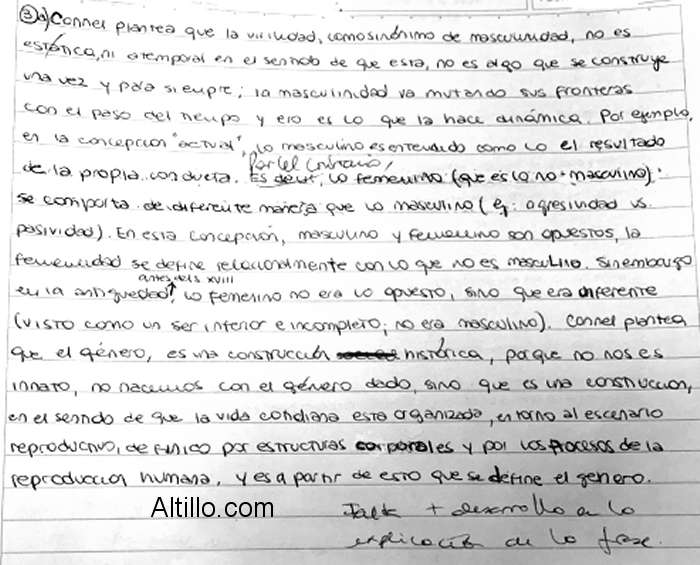 ③a) Connel plantea que la virilidad, como sinónimo de masculinidad, no es
estática, ni atemporal en el sentido de que esta, no es algo que se construye
una vez y para siempre; la masculinidad va mutando sus fronteras
con el paso del tiempo y eso es lo que la hace dinámica. Por ejemplo,
en la concepción "actual", lo masculino es entendido como lo el resultado
Por el contrario,
de la propia conducta. Es decir, lo femenino (que es lo no masculino)
se comporta de diferente manera que lo masculino (ej: agresividad vs.
pasividad). En esta concepción, masculino y femenino son opuestos, la
femeneidad se define relacionalmente con lo que no es masculino. Sin embargo
antes del s XVIII
en la antiguedad↑, lo femenino no era lo opuesto, sino que era diferente
(visto como un ser inferior e incompleto; no era masculino). Connel plantea
que el género, es una construcción histórica, porque no nos es
innato, no nacemos con el género dado, sino que es una construccion,
en el sentido de que la vida cotidiana esta organizada, en torno al escenario
reproductivo, definido por estructuras corporales y por los procesos de la
reproducción humana, y es a partir de esto que se define el genero.
Altillo.com
Falta + desarrollo a la
explicación de la frase.